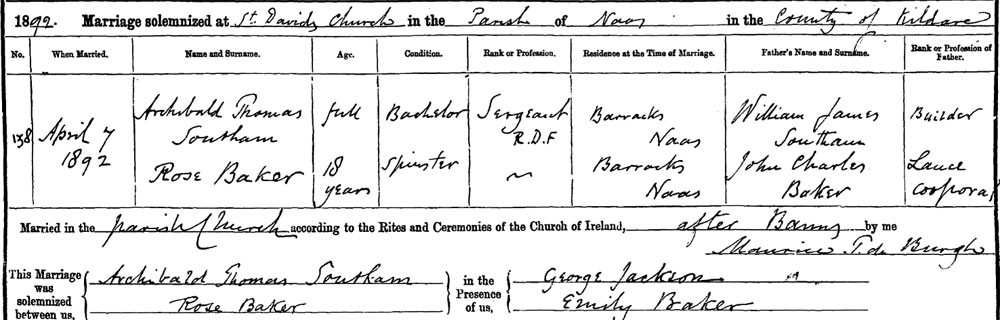 1892. Marriage solemnized at St. Davids Church in the Parish of Naas in the County of Kildare
No. When Married. Name and Surname. Age. Condition. Rank or Profession. Residence at the Time of Marriage. Father's Name and Surname. Rank or Profession of Father.
138 April 7 1892 Archibald Thomas Southam full Bachelor Sergeant R.D.F Barracks Naas William James Southam Builder
Rose Baker 18 years Spinster ~ Barracks Naas John Charles Baker Lance Corporal
Married in the parish Church according to the Rites and Ceremonies of the Church of Ireland, after Banns by me
Maurice T. de Burgh
This Marriage was solemnized between us, Archibald Thomas Southam in the Presence of us, George Jackson
Rose Baker Emily Baker